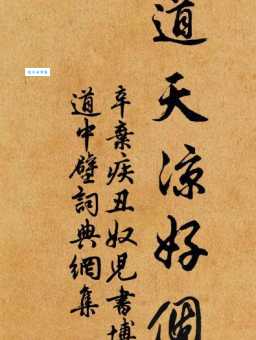 道天凉好個
辛棄疾丑奴兒書博
道中壁詞典網集